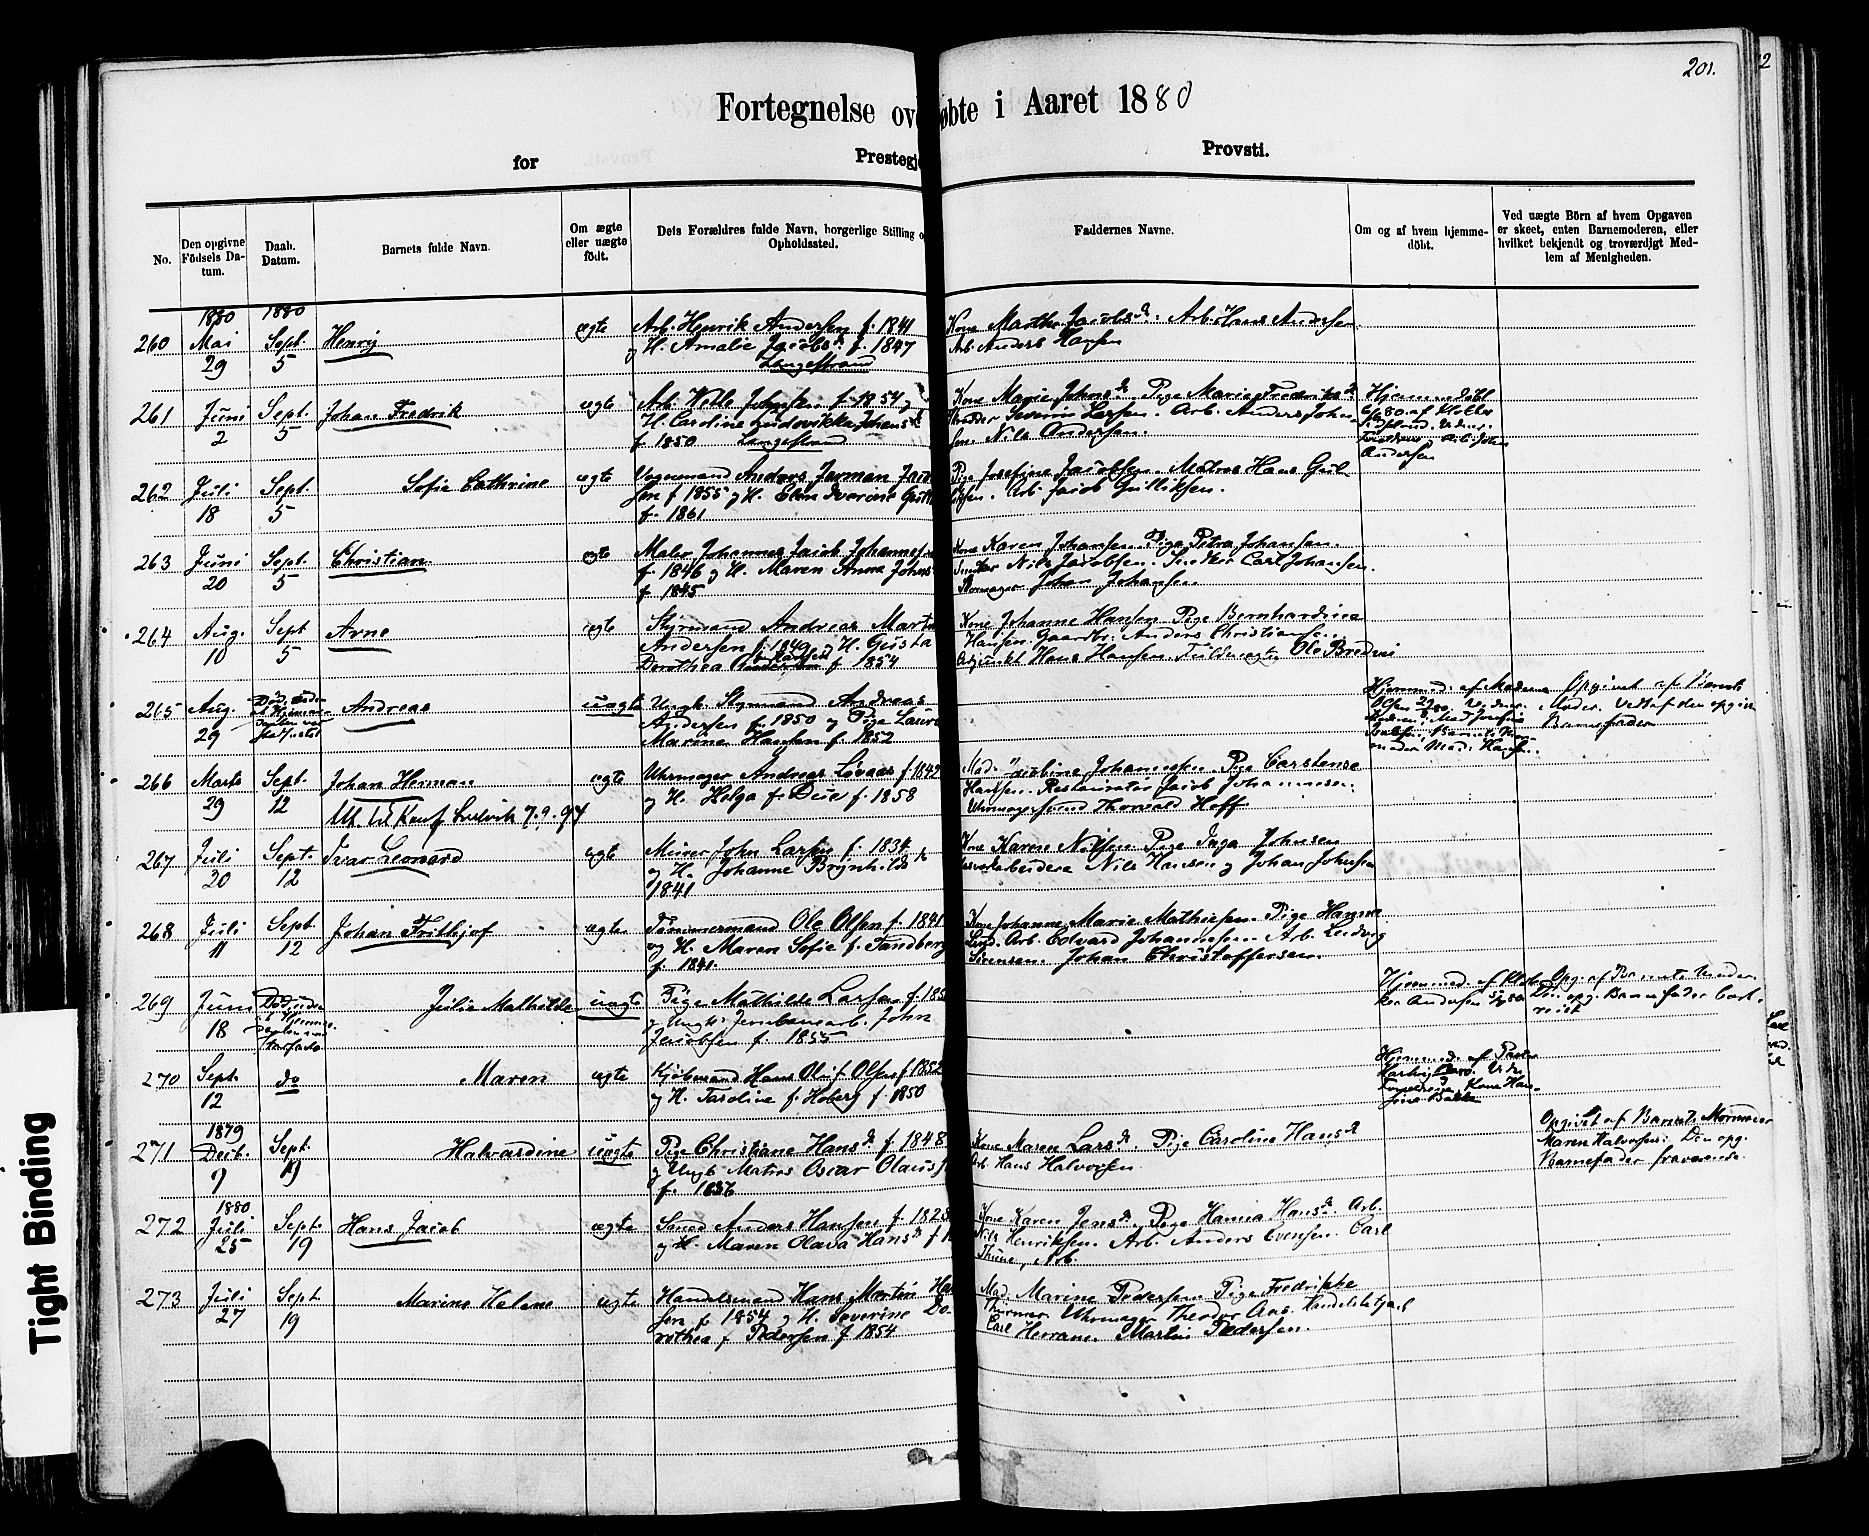 201.
Fortegnelse ov øbte i Aaret 1880
for Prestegj Provsti.
No.
Den opgivne Födsels Da-tum.
Daab. Datum.
Barnets fulde Navn.
Om ægte eller uægte födt.
Dets Forældres fulde Navn, borgerlige Stilling o Opholdssted.
Faddernes Navne.
Om og af hvem hjemme-döbt.
Ved uægte Börn af hvem Opgaven er skeet, enten Barnemoderen, eller hvilket bekjendt og troværdigt Med-lem af Menigheden.
260 1880 Mai 29 1880 Sept. 5 Henrij ægte
Arb. Henrik Andersen f. 1841
og H. Amalie Jacobsd. f. 1847
Langestrand
Kone Marthe Jacobsd. Arb. Hans Andersen
Arb. Anders Hansen
261 Juni 2 Sept. 5 Johan Fredrik ægte
Arb. Johnsen f. 1854 og
H. Caroline Ludovikka Johans
f. 1850 Langestrand
Kone Marie Johnsd. Pige Marie Fredriksd.
Severin Arb. Anders John
sen, Nils Andersen.
Hjemmedöbt
af
Andersen
262 Juli 18 Sept. 5 Sofie Cathrine ægte
Vognmand Anders Herman Jacob
sen f 1855 og H. Elen Severine
f. 1861
Pige Josefine Jacobsen. Matros Hans Gul
liksen. Arb. Jacob Gulliksen.
263 Juni 20 Sept. 5 Christian ægte
Maler Johannes Jacob Johannes
f. 1846 og H. Maren Anna Johns
f 1845
Kone Karen Johansen. Pige Petra Johansen.
Snedker Nils Jacobsen. Snedker Carl Johansen.
Johan Johansen
264 Aug. 10 Sept 5 Arne ægte
Styrmand Andreas Mart
Andersen f. 1849 og H. Gusta
Dorothea Hansen f 1854
Kone Johanne Hansen. Pige Bernhardine
Hansen. Gaardbr. Anders Christianse
Adjunkt Hans Hansen. Fuldmægtig Ole Bredesi
265 Aug. 29 Andreas uægte
Ungk. Styrmand Andreas
Andersen f. 1850 og Pige Laura
Marine Hansen f. 1852
Hjemmed. af Madame
Olsen
Opgivet af Barnets
Moder. Vedtaf den opgivn
Barnefader
266 Marts 29 Sept. 12 Johan Herman ægte
Att. til Konf. 7.9.94
Uhrmager Andreas Løvaas f 1849
og H. Helga f. Due f. 1858
Mad. Johannesen. Pige Carstense
Hansen. Restauratør Jacob Johannesen.
Uhrmagersvend Thorvald Hoff
267 Juli 20 Sept. 12 Ivar Leonard ægte
Murer John Larsen f. 1834
og H. Johanne Brynhilds
1841
Kone Karen Nilsen Pige Inga Johnsen
Nils Hansen og Johan Johnsen
268 Juli 11 Sept 12 Johan Frithjof ægte
Tømmermand Ole Olsen f. 1841
og H. Maren Sofie f. Sandberg
f. 1841.
Kone Johanne Marie Mathiesen. Pige Hanna
Lund. Arb. Edvard Johannesen. Arb. Ludvig
Sørensen. Johan Christoffersen.
269 Juni 18 Julie Mathilde uægte
Pige Mathilde Larsen f. 185
og Ungk. Jernbanearb. John
Jacobsen f. 1855
Hjemmed. af
Andersen
Opg. af Barnets Moder
Den opg. Barnefader bort-
reist
270 Sept. 12 do Maren ægte
Kjøbmand Hans Oluf Olsen f 1852
og H. Caroline f. Hoberg f. 1850
Hjemmed. af
Kone Han-
sine Bakke
271 1879 Decb. 9 Sept. 19 Halvardine uægte
Pige Christiane Hansd. f. 1848
og Ungk. Matros Oscar Olauss
f. 1856
Kone Maren Larsd. Pige Caroline Hansd.
Arb. Hans Halvorsen
Opgivet af Barnets Mormoder
Maren Halvorsen. Den opg.
Barnefader fraværende.
272 1880 Juli 25 Sept. 19 Hans Jacob ægte
Anders Hansen f. 1828
og H. Maren Olava Hansd. f
Kone Karen Jensd. Pige Hanna Hansd. Arb.
Nils Henriksen. Arb. Anders Evensen. Carl
Thune, Arb.
273 Juli 27 Sept 19 Marine Helene ægte
Handelsmand Hans Martin Han
sen f. 1854 og H. Severine Do
rothea f. Pedersen f. 1854
Mad. Marine Pedersen Pige Fredrikke
Uhrmager Theodor
Carl Herman Martin Pedersen.
Tight Binding